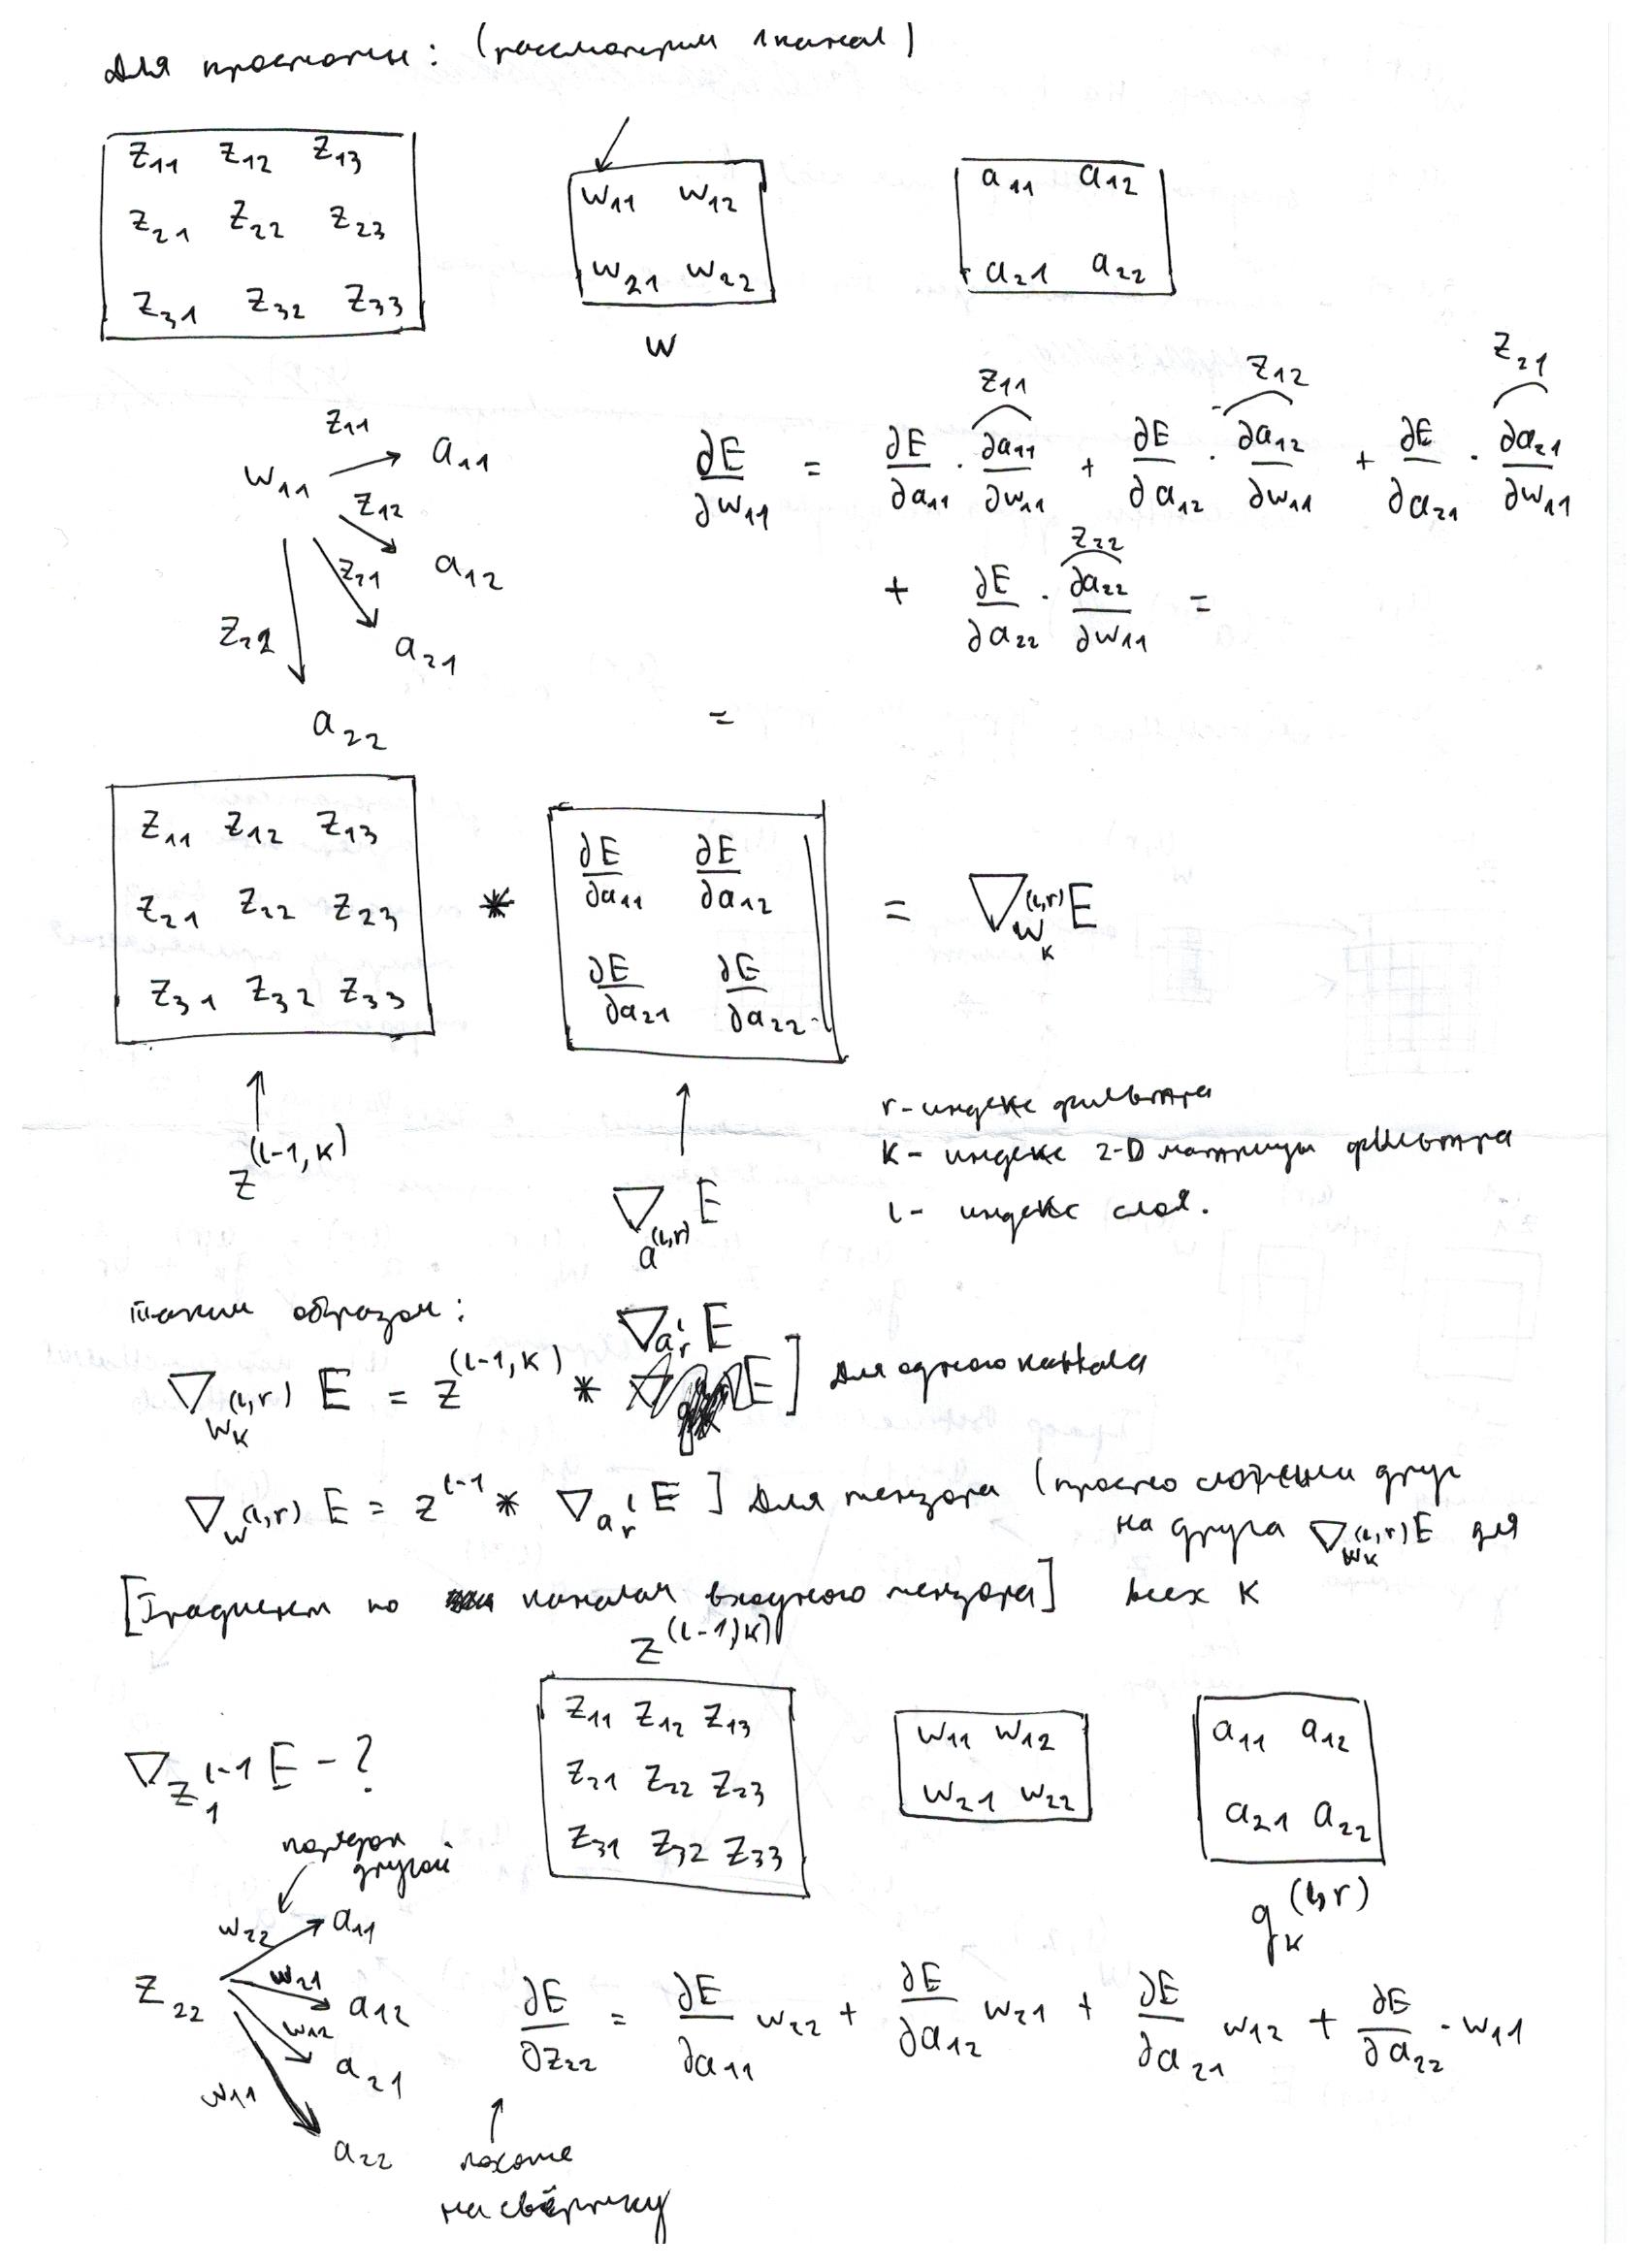 Для простоты: (рассмотрим 1 канал)
z11 z12 z13
z21 z22 z23
z31 z32 z33
w11 w12
w21 w22
w
a11 a12
a21 a22
w11
z11 a11
z12 a12
z21 a21
z22 a22
∂E/∂w11 = ∂E/∂a11 · ∂a11/∂w11 + ∂E/∂a12 · ∂a12/∂w11 + ∂E/∂a21 · ∂a21/∂w11
z11 z12 z21
+ ∂E/∂a22 · ∂a22/∂w11 =
z22
=
z11 z12 z13
z21 z22 z23
z31 z32 z33
*
∂E/∂a11 ∂E/∂a12
∂E/∂a21 ∂E/∂a22
= ∇w_k^(l,r) E
z^(l-1,k)
∇a^(l,r) E
r - индекс фильтра
k - индекс 2-D матрицы фильтра
l - индекс слоя.
Таким образом:
∇w_k^(l,r) E = z^(l-1,k) * ∇a_r^l E ] Для одного канала
∇w^(l,r) E = z^l-1 * ∇a_r^l E ] Для тензора (просто сложены друг
на друга ∇w_k^(l,r) E для
всех k
[Градиент по каналам входного тензора]
z^(l-1,k)
∇z_1^l-1 E - ?
z11 z12 z13
z21 z22 z23
z31 z32 z33
w11 w12
w21 w22
a11 a12
a21 a22
q_k^(l,r)
порядок
другой
z22
w22 a11
w21 a12
w12 a21
w11 a22
∂E/∂z22 = ∂E/∂a11 w22 + ∂E/∂a12 w21 + ∂E/∂a21 w12 + ∂E/∂a22 · w11
похоже
на свёртку